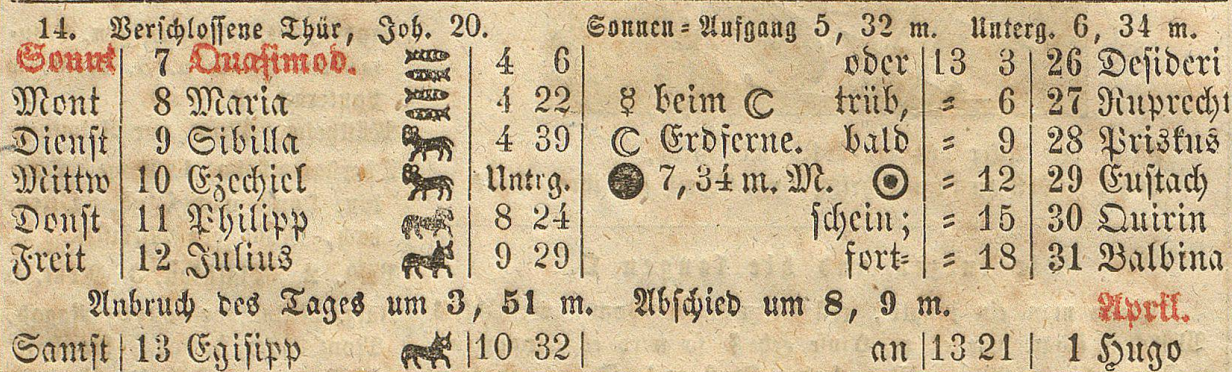 14. Verschlossene Thür, Joh. 20. Sonnen=Aufgang 5, 32 m. Unterg. 6, 34 m.
Sonnt 7 Quasimod. 4 6 oder 13 3 26 Desideri
Mont 8 Maria 4 22 ☿ beim ☾ trüb, = 6 27 Ruprecht
Dienst 9 Sibilla 4 39 ☾ Erdferne. bald = 9 28 Priskus
Mittw 10 Ezechiel Untrg. ● 7, 34 m. M. ☉ = 12 29 Eustach
Donst 11 Philipp 8 24 schein; = 15 30 Quirin
Freit 12 Julius 9 29 fort= = 18 31 Balbina
Anbruch des Tages um 3, 51 m. Abschied um 8, 9 m. April.
Samst 13 Egisipp 10 32 an 13 21 1 Hugo